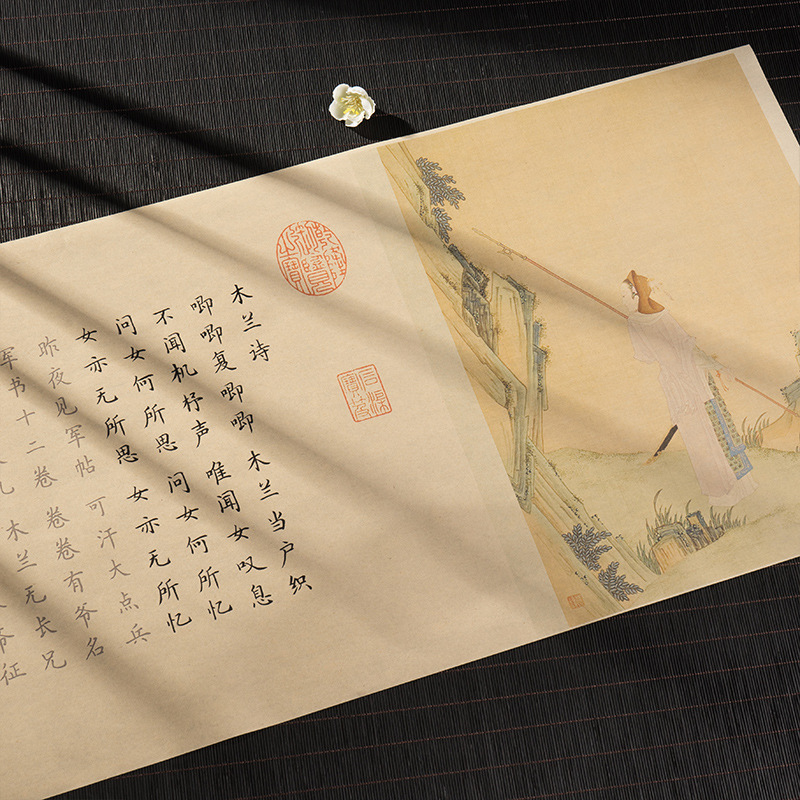 木兰诗
唧唧复唧唧 木兰当户织
不闻机杼声 唯闻女叹息
问女何所思 问女何所忆
女亦无所思 女亦无所忆
昨夜见军帖 可汗大点兵
军书十二卷 卷卷有爷名
儿 木兰无长兄
爷征